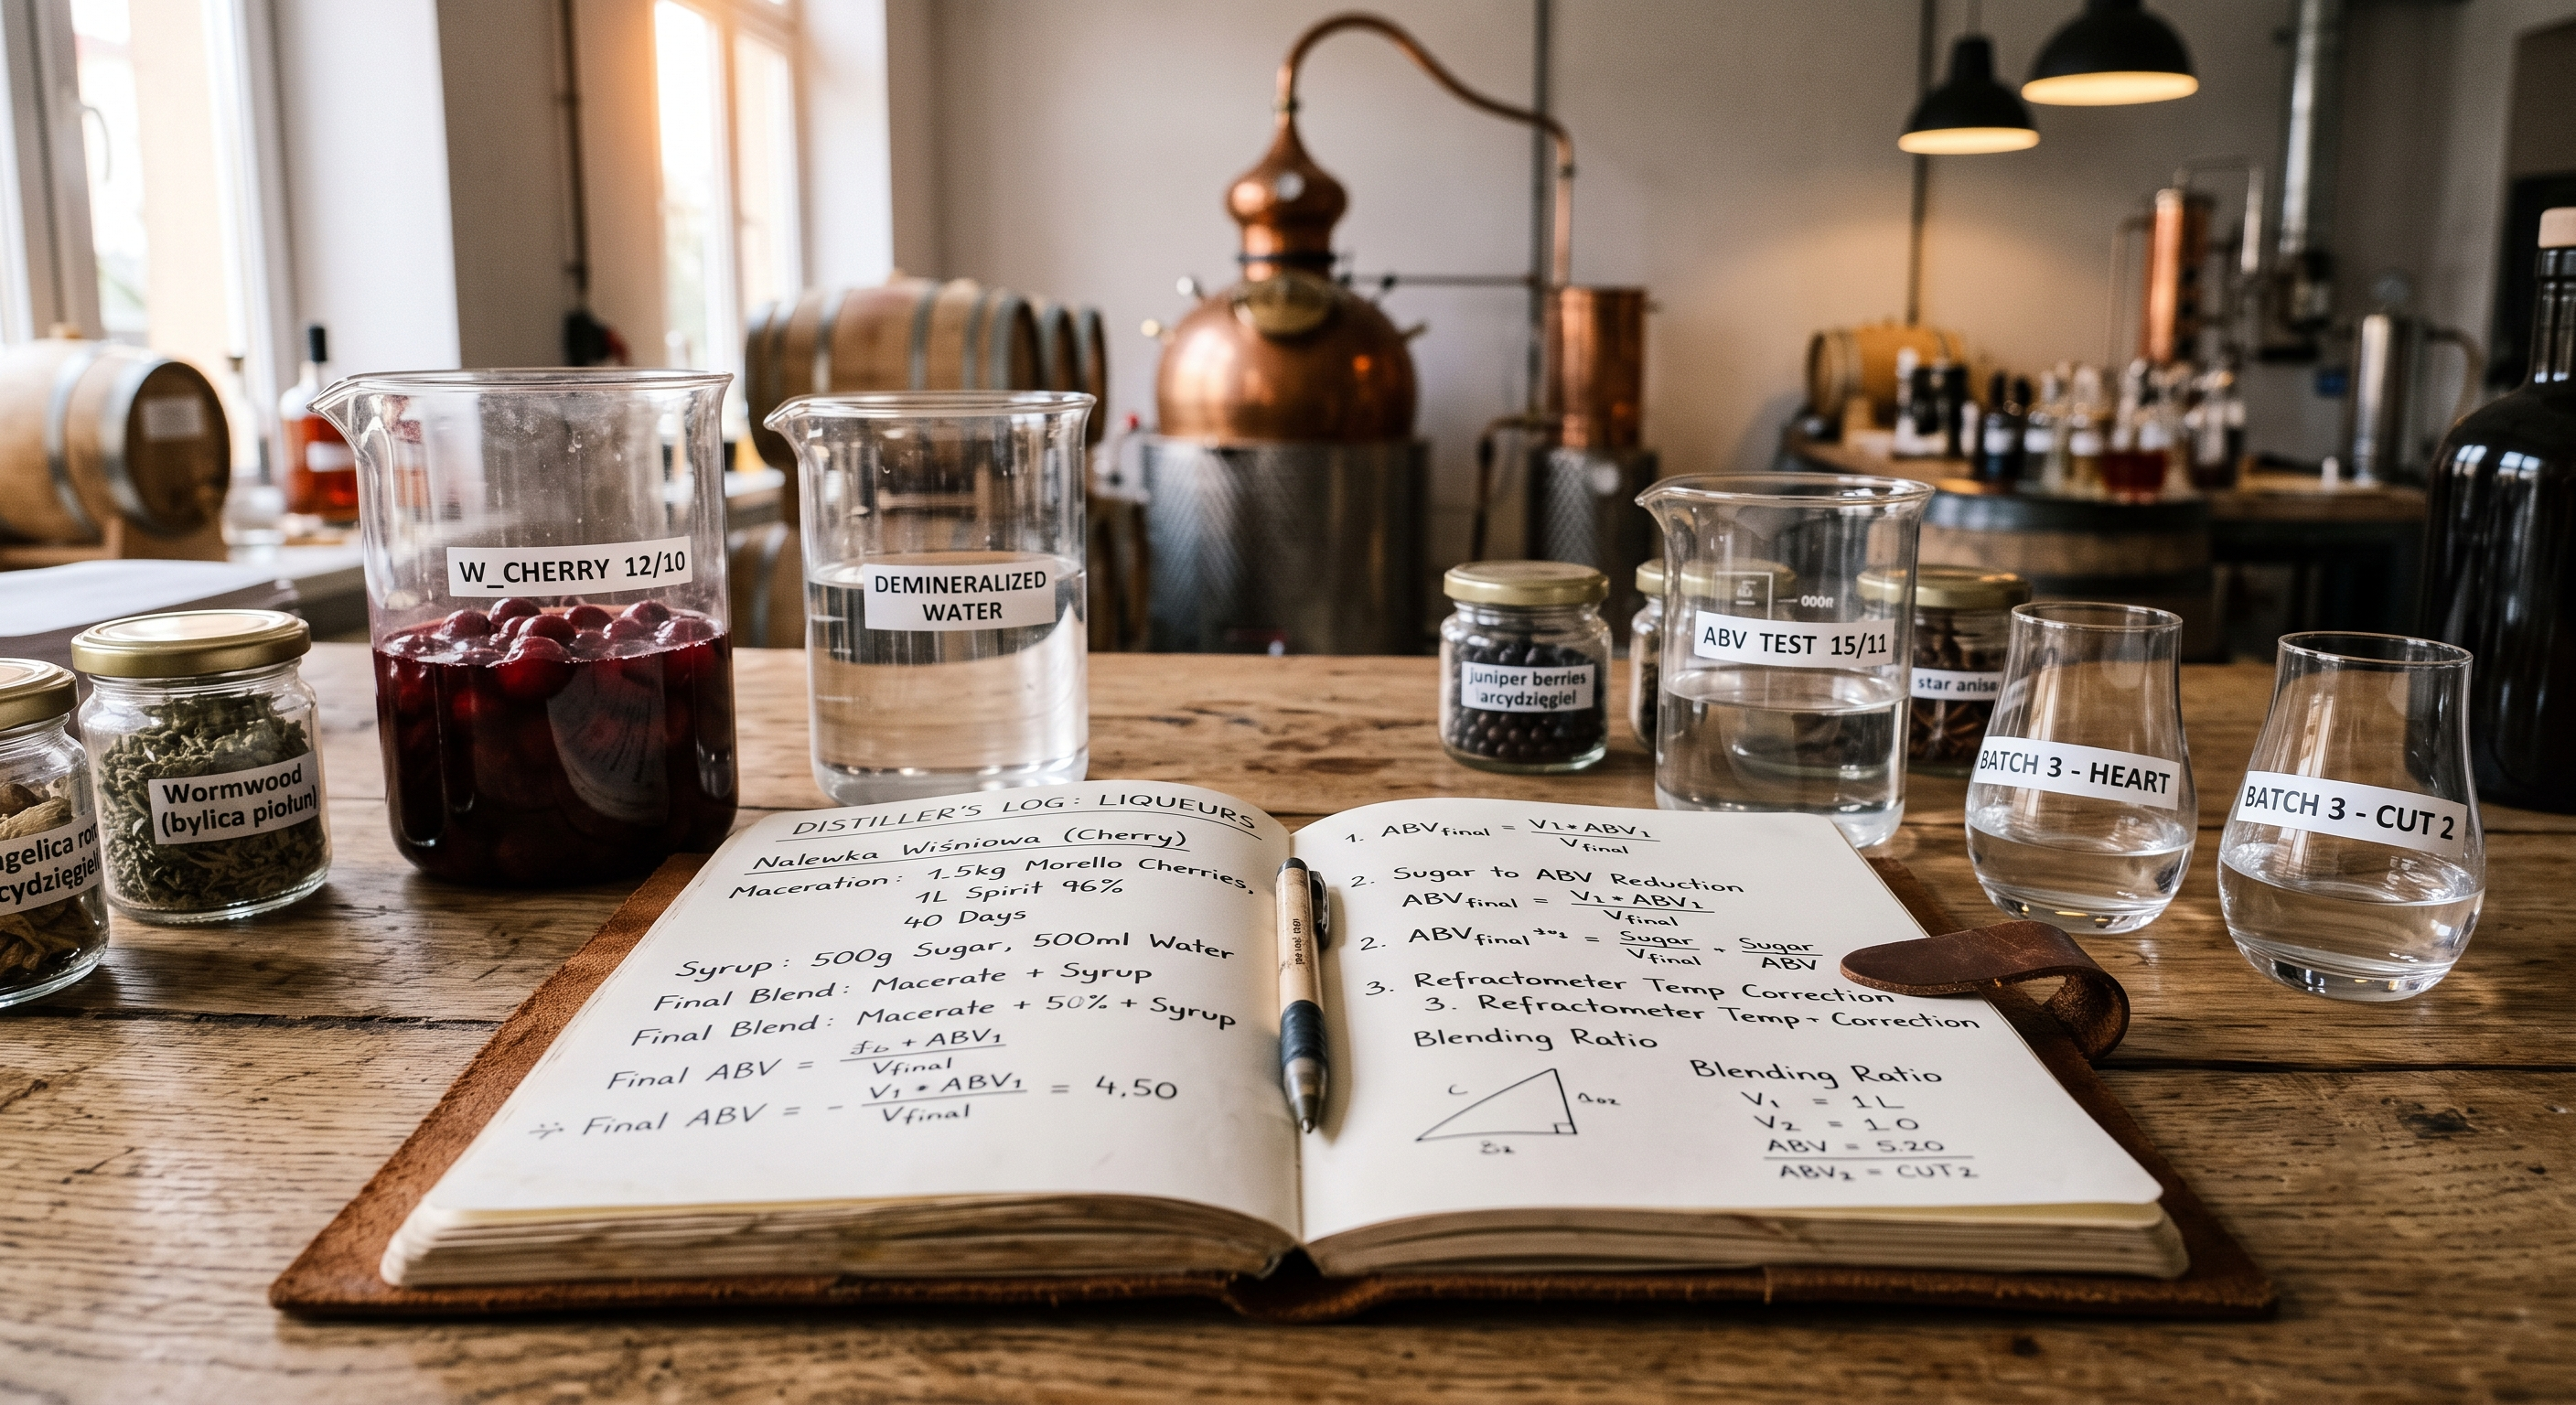 W_CHERRY 12/10
DEMINERALIZED
WATER
Wormwood
(bylica piołun)
juniper berries
arcydzięgiel
ABV TEST 15/11
star anise
BATCH 3 - HEART
BATCH 3 - CUT 2
DISTILLER'S LOG: LIQUEURS
Nalewka Wiśniowa (Cherry)
Maceration: 1.5kg Morello Cherries,
1L Spirit 96%
40 Days
Syrup: 500g Sugar, 500ml Water
Final Blend: Macerate + Syrup
Final Blend: Macerate + 50% + Syrup
Final ABV = + ABV₁
Vfinal
÷ Final ABV = - V₁ * ABV₁ = 4,50
Vfinal
1. ABVfinal = V₁* ABV₁
Vfinal
2. Sugar to ABV Reduction
ABVfinal = V₁ * ABV₁
Vfinal
2. ABVfinal = Sugar + Sugar
Vfinal ABV
3. Refractometer Temp Correction
3. Refractometer Temp + Correction
Blending Ratio
Blending Ratio
V₁ = 1L
V₂ = 1.0
ABV = 5.20
ABV₂ = CUT 2